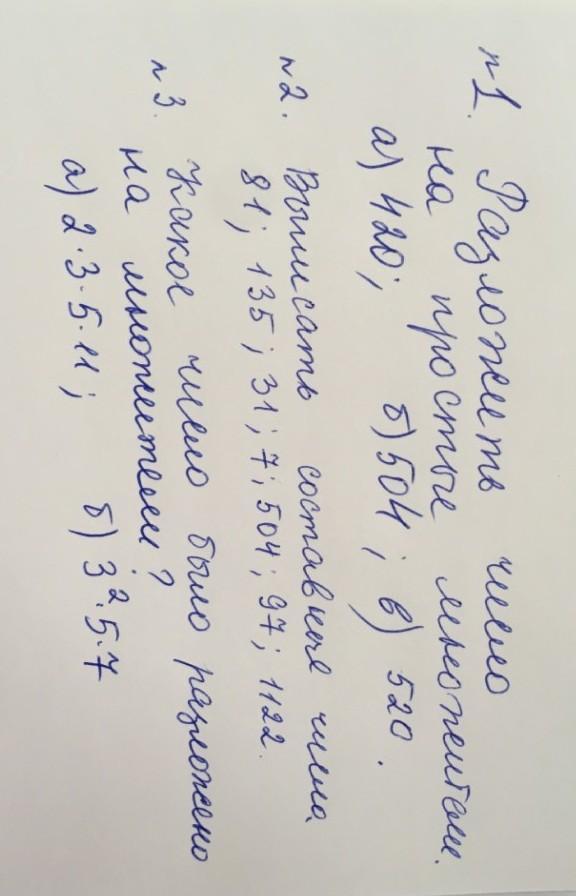 №1. Разложить число
на простые множители.
а) 420; б) 504; в) 520.
№2. Выписать составные числа
81; 135; 31; 7; 504; 97; 1122.
№3. Какое число было разложено
на множители?
а) 2·3·5·11; б) 3²·5·7